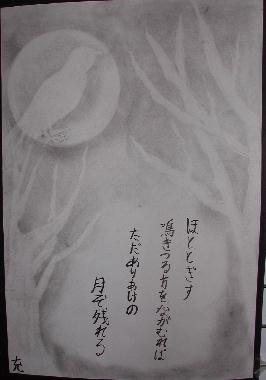 ほととぎす
鳴きつる方をながむれば
ただありあけの
月ぞ残れる